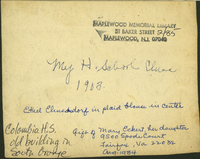 MAPLEWOOD MEMORIAL LIBRARY
51 BAKER STREET 12/85
MAPLEWOOD, N.J. 07040
My H. School Class
1908
Ethel in plaid blouse in center
Columbia H.S.
old building in
South Orange
Gift of Mary Eckert, her daughter
Fairfax, Va 22032
1984